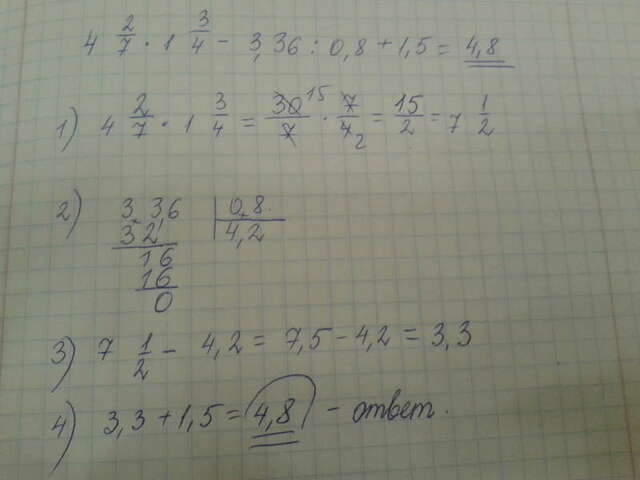 4 2/7 · 1 3/4 - 3,36 : 0,8 + 1,5 = 4,8
1) 4 2/7 · 1 3/4 = 30 15/7 · 7/4 2 = 15/2 = 7 1/2
2) 3,36 | 0,8
32 | 4,2
16
16
0
3) 7 1/2 - 4,2 = 7,5 - 4,2 = 3,3
4) 3,3 + 1,5 = 4,8 - ответ.